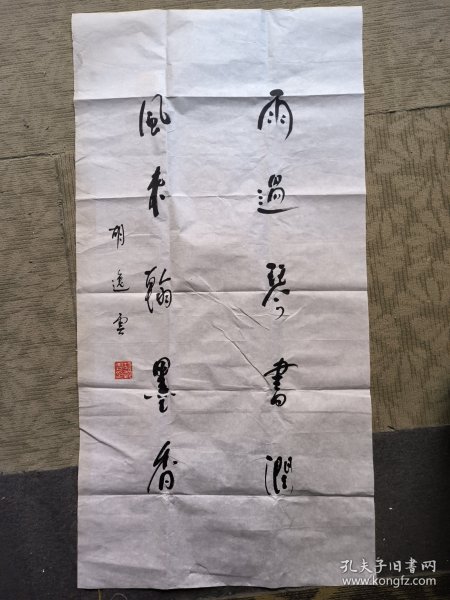 雨過琴書潤
風來翰墨香
胡逸雲
孔夫子旧书网
www.kongfz.com